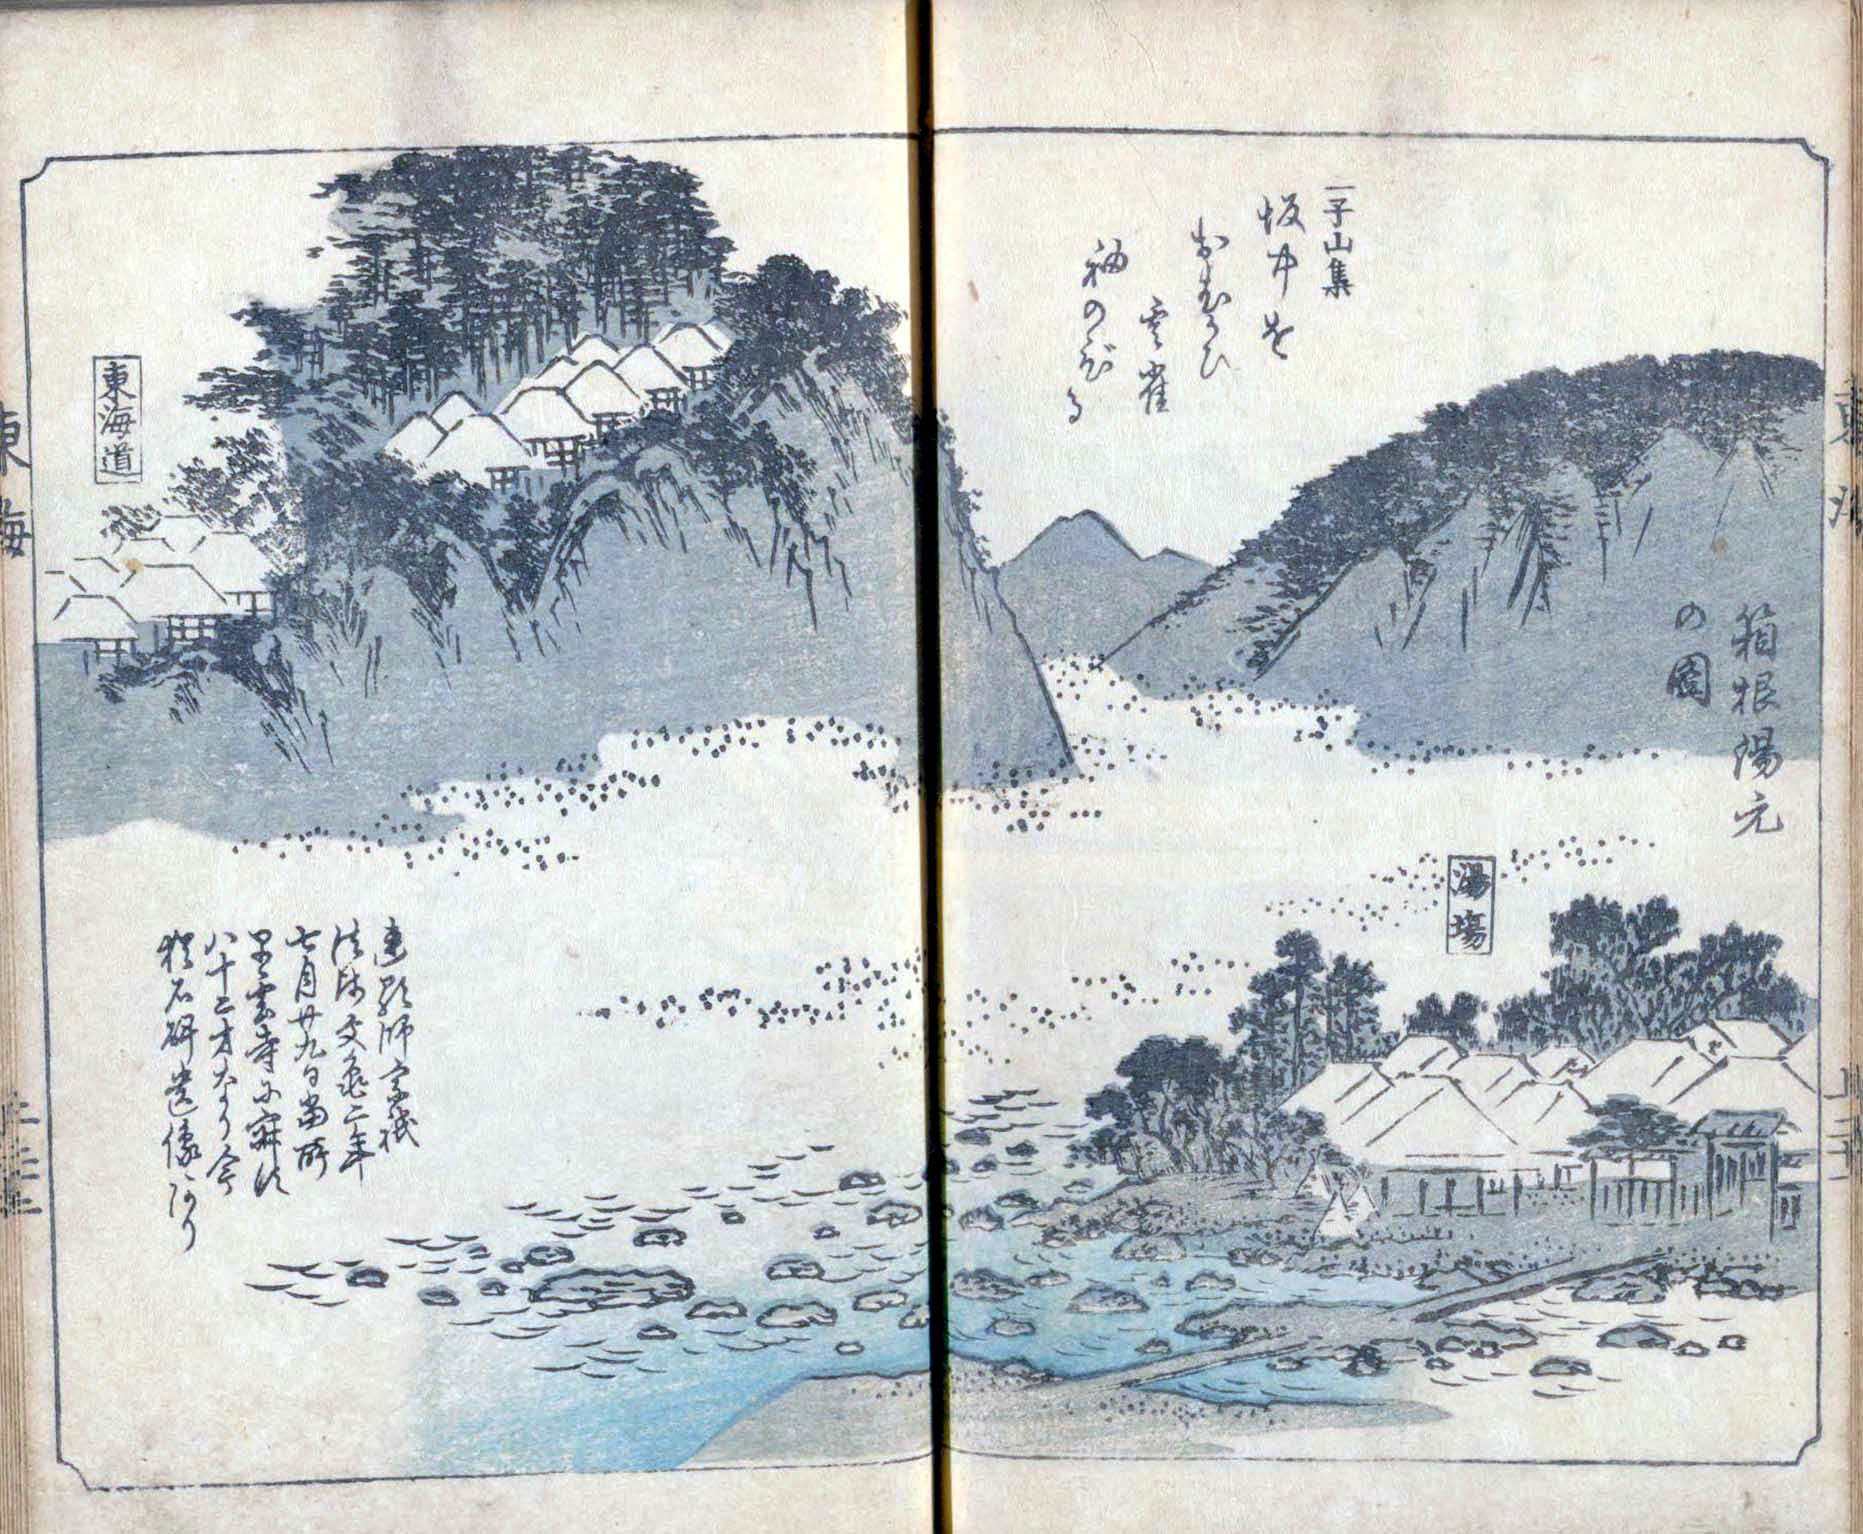 箱根湯元
の圖
一子山集
坂中を
雲雀
袖のびる
湯場
東海道
連歌師宗祇
法師文亀二年
七月廿九日当所
早雲寺に寂す
八十二才なり今
猶石碑遺像あり
東海